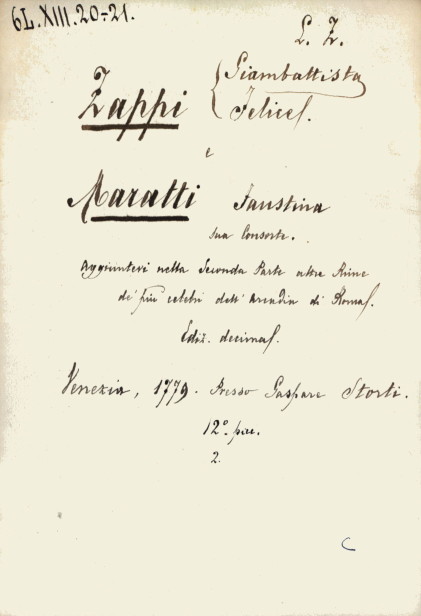 6L.XIII.20-21.
L. Z.
Zappi { Giambattista
Felice.
e
Maratti Faustina
sua Consorte.
Aggiuntevi nella Seconda Parte altre Rime
de' più celebri dell' Arcadia di Roma.
Ediz. decima.
Venezia, 1779. Presso Gaspare Storti.
12.º
2.
C